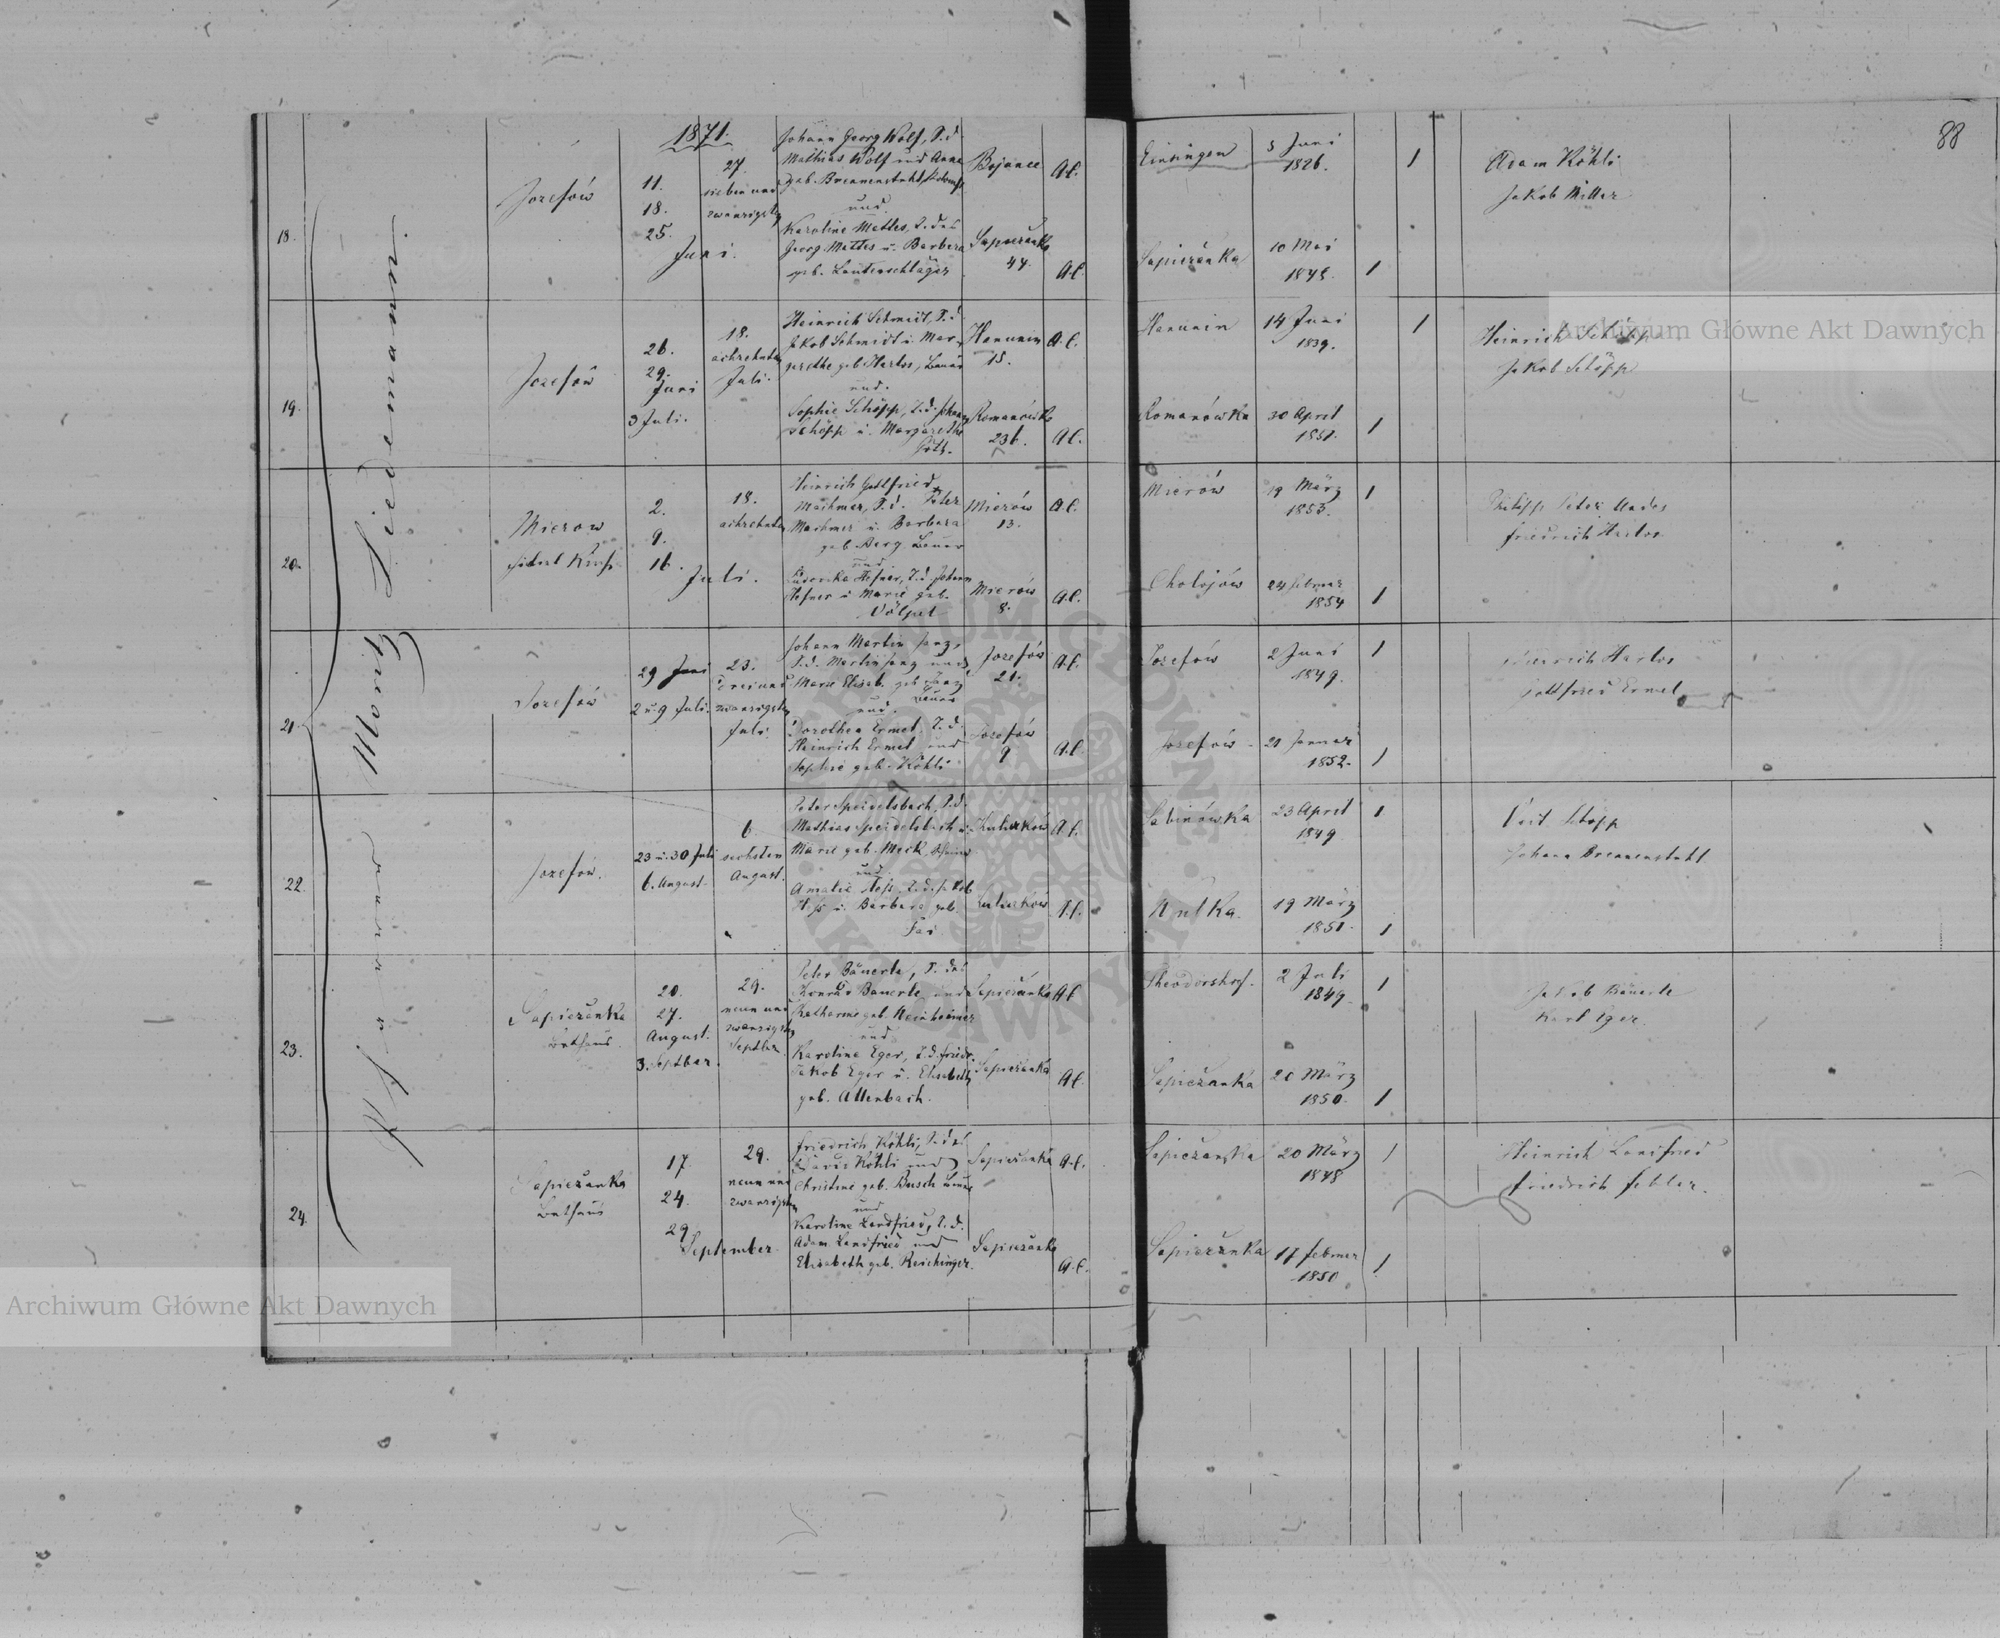 88
1871.
18.
Jozefów
11.
18.
25.
Juni.
27.
sieben und
zwanzigsten
Johann Georg Wolf, S.d.
Mathias Wolf und Anna
geb. Brennenstuhl,
und
Karoline Mattes, T. des
Georg Mattes u. Barbara
geb. Lautenschläger
Bojanec
A.C.
Sapiezanka
44.
A.C.
Einsingen
5 Juni
1826.
1
Sapiežanka
10 Mai
1848.
1
Adam Köhli
Jakob Miller
19.
Jozefów
26.
29.
Juni
3 Juli.
18.
achzehnten
Juli.
Heinrich Schmidt, S.d.
Jakob Schmidt u. Mar-
grethe geb. Harlos, Bauer
und.
Sophie Schöpp, T.d. Johann
Schöpp u. Margarethe
Götz.
Hanunin
15.
A.C.
Romanówka
236.
A.C.
Hanunin
14 Juni
1839.
1
Romanówka
30 April
1851.
1
Heinrich Schöpp
Jakob Schöpp
20.
Mierow
2.
9.
16.
Juli.
18.
achzehnten
Heinrich Gottfried
Machmer, S.d. Peter
Machmer u. Barbara
geb. Berg Bauer
und
Hefner, T.d. Johann
Hefner u. Marie geb.
Völpel
Mierów
13.
A.C.
Mierów
8.
A.C.
Mierów
19 März
1853.
1
Cholojów
24 Februar
1854
1
Philipp Peter
Friedrich Harlos
21.
Jozefów
29 Juni
2 u. 9 Juli.
23.
drei und
zwanzigsten
Juli.
Johann Martin Jung,
S.d. Martin Jung und
Marie Elisab. geb. Jung
Bauer
und.
Dorothea Ermel, T.d.
Heinrich Ermel und
Sophie geb. Köhli
Jozefów
21.
A.C.
Jozefów
9
A.C.
Jozefów
2 Juni
1849.
1
Jozefów
21 Januar
1852.
1
Heinrich Harlos
Gottfried Ermel
22.
Jozefów.
23 u. 30 Juli
6. August.
6.
sechsten
August.
Peter Speidelsbach, S.d.
Mathias Speidelsbach u.
Marie geb. Meck,
und
Amalie T.d. Jakob
u. Barbara geb.
A.C.
A.C.
Sabinówka
23 April
1849
1
19 März
1851.
1
Veit Stopp
Johann Brennenstuhl
23.
Sapiežanka
Bethaus
20.
27.
August.
3. Septber.
29.
neun und
zwanzigsten
Septber.
Peter Bäuerle, S. des
Konrad Bäuerle und
Katharine geb. Weinheimer
und
Karoline Eger, T.d. Friedr.
Jakob Eger u. Elisabeth
geb. Allenbach.
Sapiežanka
A.C.
Sapiežanka
A.C.
Theodorshof.
2 Juli
1849.
1
Sapiežanka
21 März
1850.
1
Jakob Bäuerle
Karl Eger.
24.
Sapiežanka
Bethaus
17.
24.
29
September.
29.
neun und
zwanzigsten
Friedrich Köhli, S. des
David Köhli und
Christine geb. Busch Bauer
und
Karoline Landfried, T.d.
Adam Landfried und
Elisabeth geb. Reichinger.
Sapiežanka
A.C.
Sapiežanka
A.C.
Sapiežanka
20 März
1848
1
Sapiežanka
17 Februar
1850
1
Heinrich Landfried
Friedrich
Archiwum Główne Akt Dawnych
Archiwum Główne Akt Dawnych